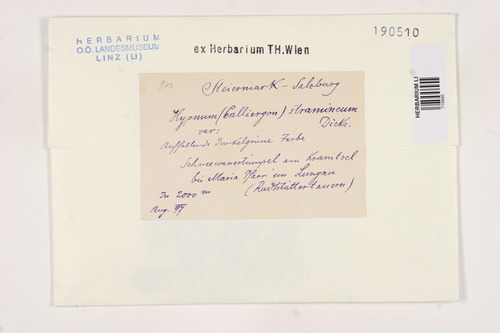 HERBARIUM
O.Ö. LANDESMUSEUM
LINZ (LI)
ex Herbarium TH.Wien
190510
HERBARIUM LI
Steiermark - Salzburg
Hypnum (Calliergon) stramineum
var: Dicks.
Auffallende dunkelgrüne Farbe
Schneewassertümpel am Kranitsch
bei Maria Pfarr im Lungau
In 2000 m (Radstättertauern)
Aug.